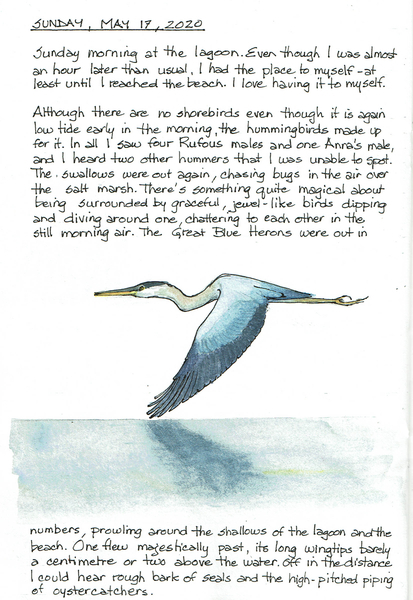 SUNDAY, MAY 17, 2020
Sunday morning at the lagoon. Even though I was almost
an hour later than usual, I had the place to myself - at
least until I reached the beach. I love having it to myself.
Although there are no shorebirds even though it is again
low tide early in the morning, the hummingbirds made up
for it. In all I saw four Rufous males and one Anna's male,
and I heard two other hummers that I was unable to spot.
The swallows were out again, chasing bugs in the air over
the salt marsh. There's something quite magical about
being surrounded by graceful, jewel-like birds dipping
and diving around one, chattering to each other in the
still morning air. The Great Blue Herons were out in
numbers, prowling around the shallows of the lagoon and the
beach. One flew majestically past, its long wingtips barely
a centimetre or two above the water. Off in the distance
I could hear rough bark of seals and the high-pitched piping
of oystercatchers.